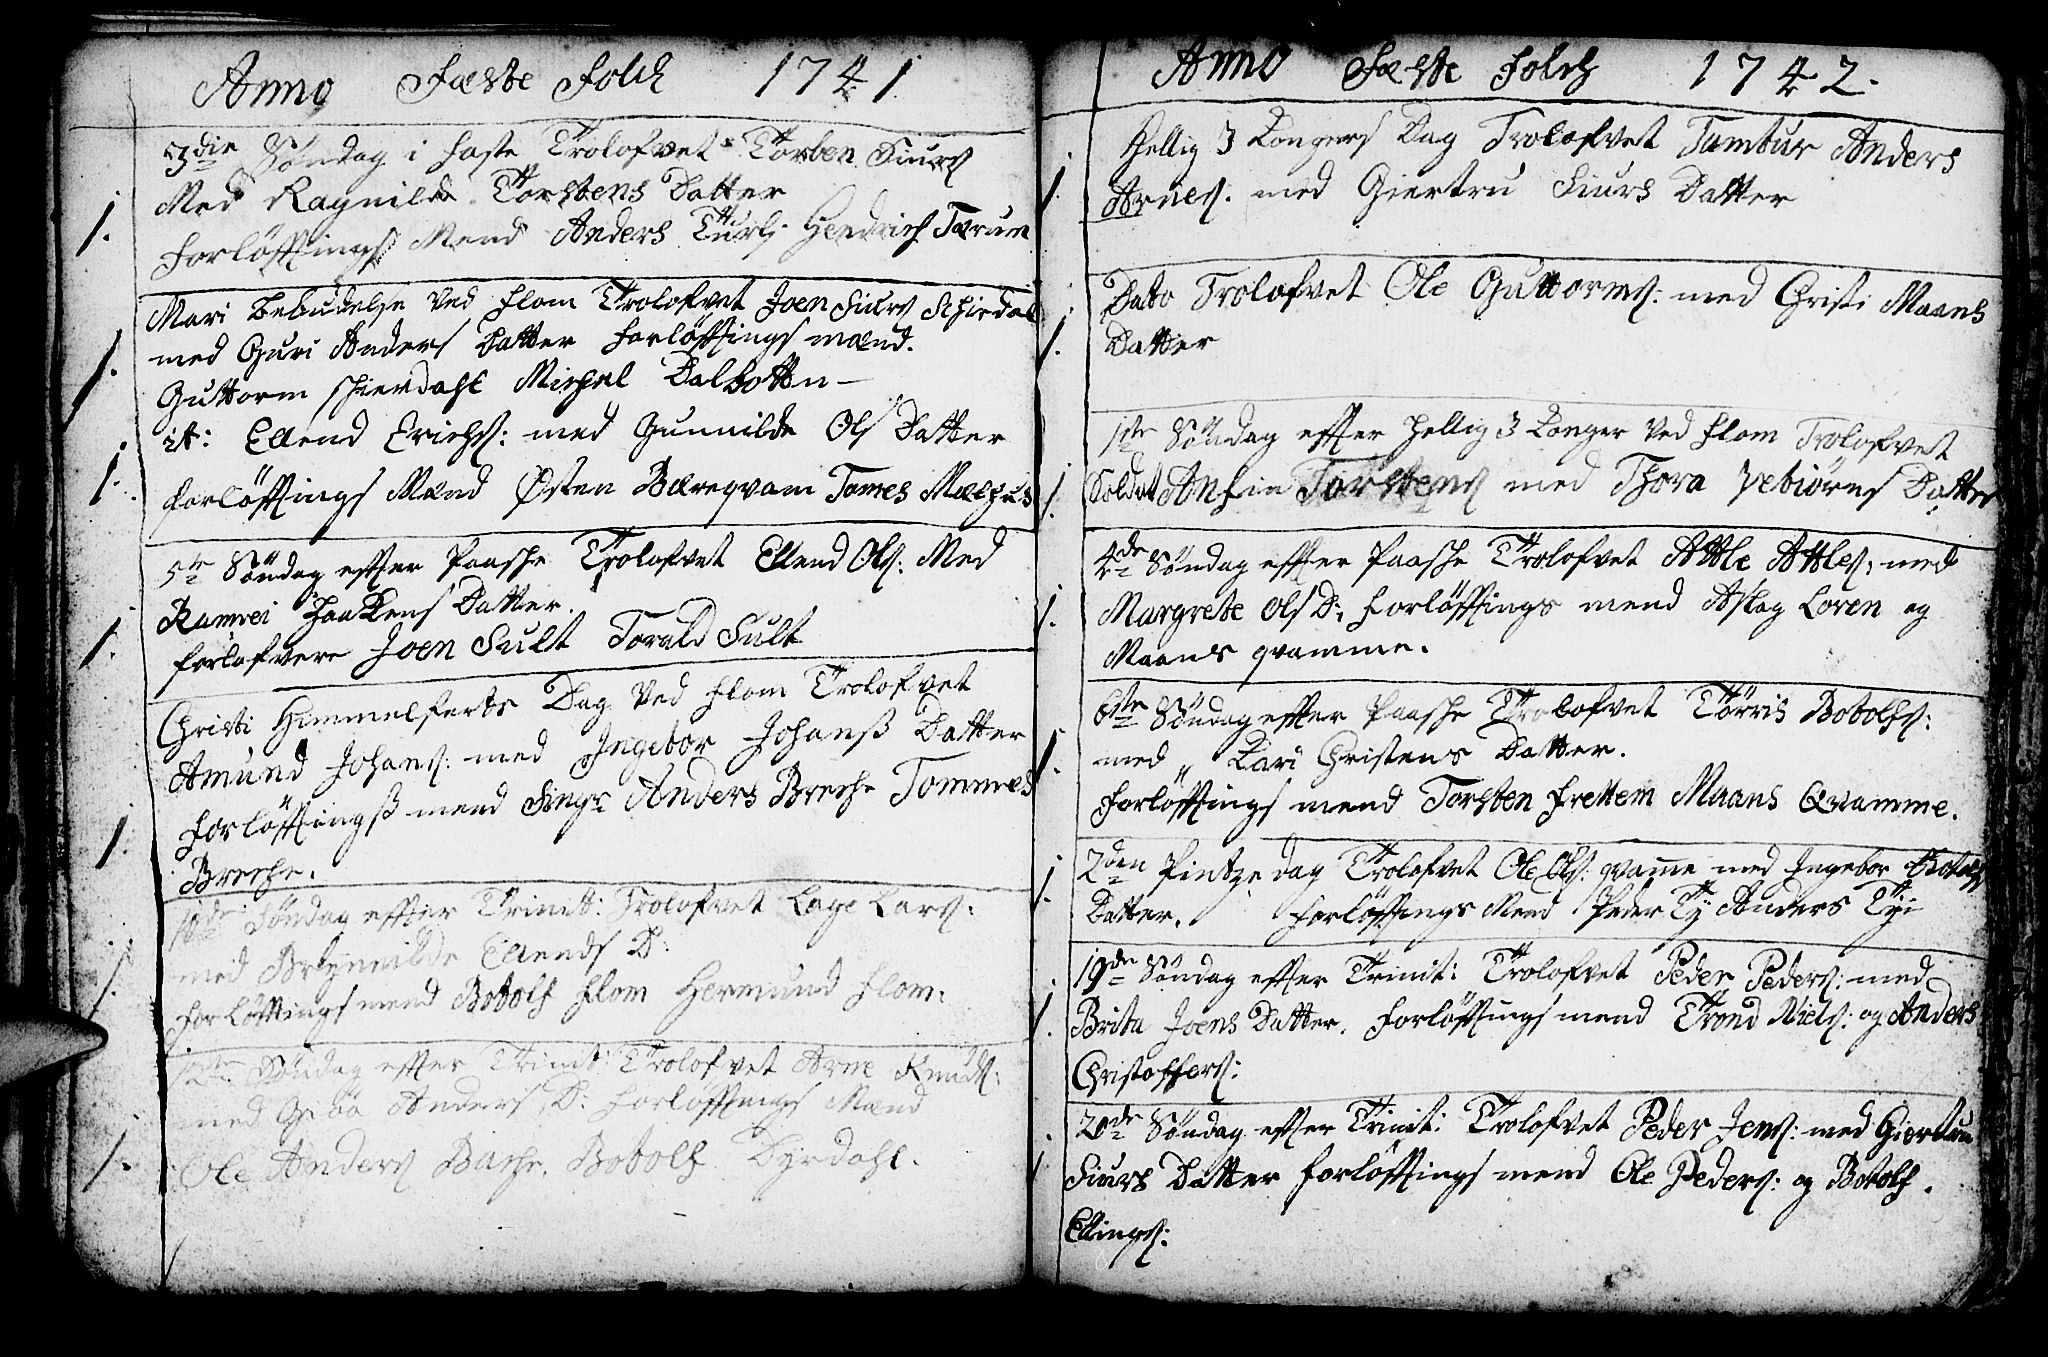 Anno Fæste Folch 1741
3die Søndag i Faste Trolofvet Torben Siurs
Med Ragnilda Torstens Datter
1. Forløftings Mend Anders Hendrich Tærum
Mari Bebudelse Ved Flom Trolofvet Joen Siurs Schirdal
1. med Guri Anders Datter Forløftings mænd.
Guttorm schierdahl Michel Dalbotten -
it: Ellend Erichs: med Gunnilde Ols Datter
1. forløftings Mænd Østen Bæreqvam Tomes Mælhus
5te Søndag effter Paasche Trolofvet Ellend Ols: Med
Ramvei Haakens Datter.
1. forlofvere Joen Fult Torald Fult
Christi Himmelferts Dag Ved Flom Trolofvet
Amund Johans: med Ingebor Johanß Datter
1. forløftingß mend Anders Breche Tommes
Breche.
Søndag effter Trinit: Trolofvet Lage Lars:
med Brynnilde Ellends D:
1. forløftings mend Botolf Flom Hermund Flom:
Søndag effter Trinit: Trolofvet Arne Knuds:
med Giöa Anders D: Forløftings Mænd
1. Ole Anders Bache. Botolf Dyrdahl.
Anno Fæste Folch 1742.
Hellig 3 Kongers Dag Trolofvet Tambur Anders
1. Arnes. med Giertru Siurs Datter
Dato Trolofvet Ole Guttorms: med Christi Maans
1. Datter
1ste Søndag effter Hellig 3 Konger Ved Flom Trolofvet
1. Soldat Anfin Torstens med Thora Vebiørns Datter
4de Søndag effter Paasche Trolofvet Attle Attles: med
1. Margrete Ols D: Forløftings mend Aslag Loven og
Maans qvamme.
6te Søndag effter Paasche Trolofvet Törris Botolfs:
1. med „ Kari Christens Datter.
Forløftings mend Torsten Frettem Maans Qvamme.
2den Pintze dag Trolofvet Ole Ols: qvam̄e med Ingebor Botolfs
1. Datter. Forløftings Mend Peder Ty Anders Tyi
19de Søndag effter Trinit: Trolofvet Peder Peders: med
1. Brita Joens Datter. Forløftings mend Trond Niels: og Anders
Christoffers:
20de Søndag effter Trinit: Trolofvet Peder Jens: med Giertru
1 Siurs Datter Forløftings mend Ole Peders: og Botolf.
Ellings: